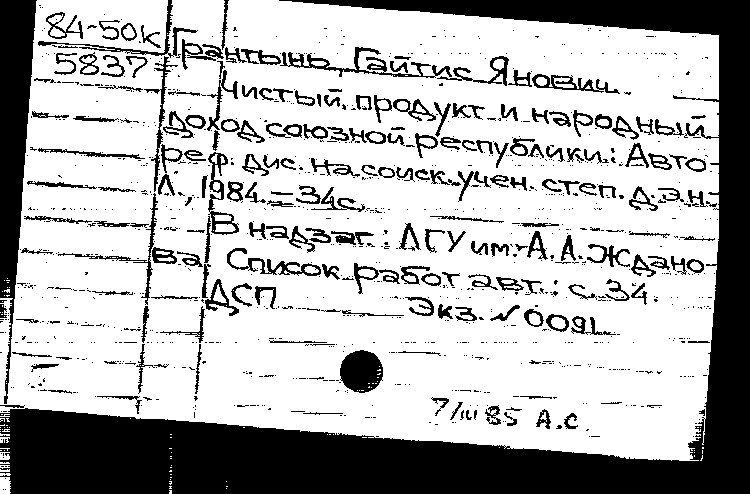 84-50к
5837=
Грантынь, Гайтис Янович.
Чистый продукт и народный
доход союзной республики: Авто-
реф. дис. на соиск. учен. степ. д.э.н.
Л., 1984. = 34с.
В надзаг.: ЛГУ им. А.А. Ждано-
ва. Список работ авт.: с. 34.
ДСП Экз. №0091
7/III 85 А.С.